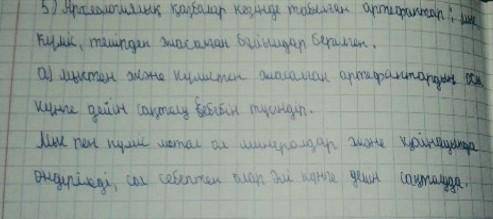 5) Археологиялық қазбалар кезінде табылған артефактар; мыс
күміс, темірден жасалған бұйымдар берілген.
а) мыстен және күмістен жасалған артефактардың осы
күнге дейін сақталу себебін түсіндір.
Мыс пен күміс метал ол минералдар және
өндіріледі, сол себептен олар әлі күнге дейін сақталуда.